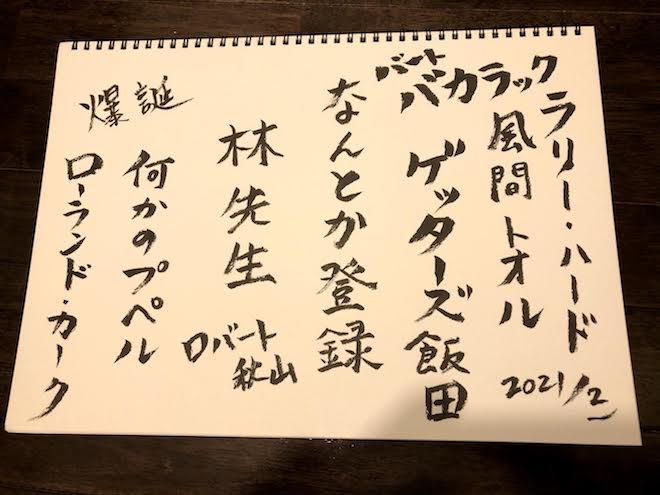 ラリー・ハード
風間トオル
2021/2
バート
バカラック
ゲッターズ飯田
なんとか登録
林先生
ロバート
秋山
何かのプペル
爆誕
ローランド・カーク